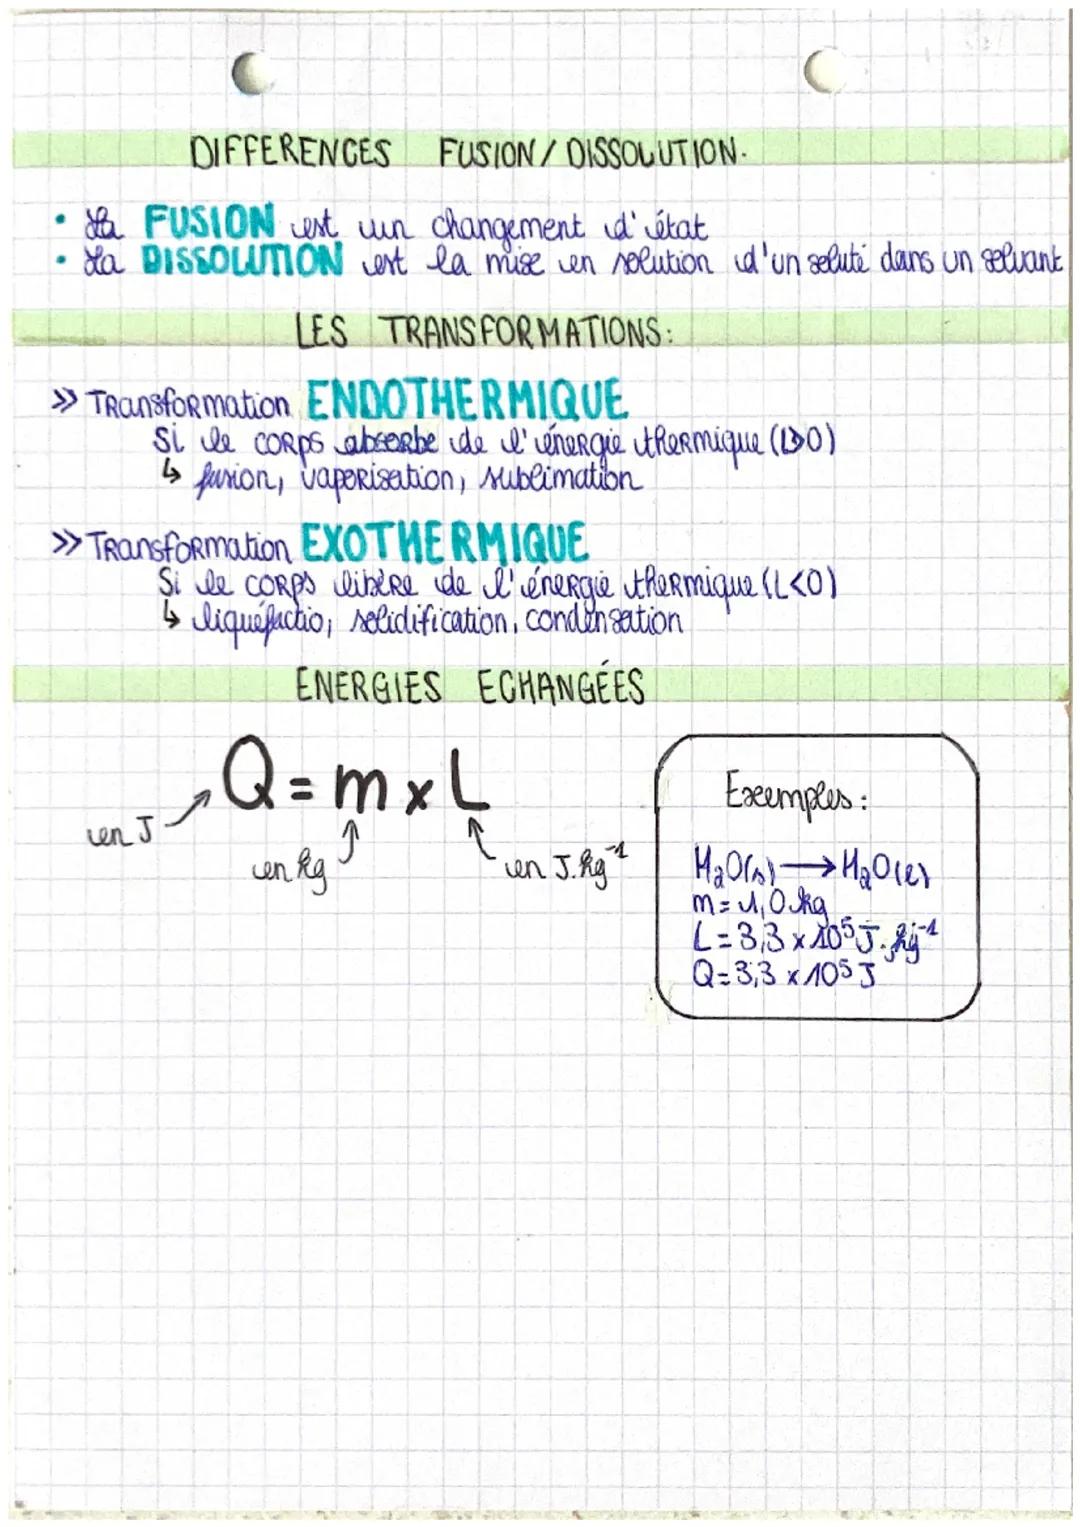 DIFFERENCES FUSION / DISSOLUTION.
• La FUSION est un changement d'état
• La DISSOLUTION est la mise en solution d'un soluté dans un solvant
LES TRANSFORMATIONS:
>> TRansfoRmation ENDOTHERMIQUE
Si le CORPS absorbe de l'énergie thermique (L>0)
↳ fusion, vaporisation, sublimation
>> TRansfoRmation EXOTHERMIQUE
Si le CORPS libère de l'énergie thermique (L<0)
↳ liquéfactio, solidification, condensation
ENERGIES ECHANGÉES
Q = m x L
en J
en kg
en J.kg⁻¹
Exemples :
H₂O(s) → H₂O(l)
m = 1,0 kg
L = 3,3 x 10⁵ J.kg⁻¹
Q = 3,3 x 10⁵ J